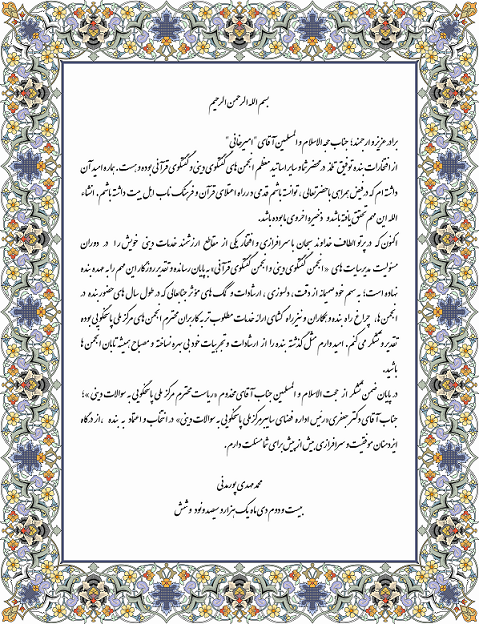 بسم الله الرحمن الرحیم
برادر عزیز و ارجمند؛ جناب حجه الاسلام و المسلمین آقای "امیرخانی"
از افتخارات بنده توفیق تلمذ در محضر شما و سایر اساتید معظم انجمن های گفتگوی دینی و گفتگوی قرآنی بوده و هست. هماره امید آن
داشته ام که در فیض همراهی با حضرتعالی، توانسته باشم قدمی در راه اعتلای قرآن و فرهنگ ناب اهل بیت داشته باشم. انشاء
الله این مهم تحقق یافته باشد و ذخیره اخروی ما بوده باشد.
اکنون که در پرتو الطاف خداوند سبحان با سرافرازی و افتخار یکی از مقاطع ارزشمند خدمات دینی خویش را در دوران
مسئولیت مدیر سایت های «انجمن گفتگوی دینی و انجمن گفتگوی قرآنی» به پایان رسانده و تقدیر روزگار این مهم را به عهده بنده
نهاده است؛ به سهم خود صمیمانه از دقت، دلسوزی، ارشادات و کمک های موثر جنابعالی که در طول سال های حضور بنده در
انجمن ها، چراغ راه بنده و همکاران و نیز راه گشای ارائه خدمات مطلوب تر به کاربران محترم انجمن های مرکز ملی پاسخگویی بوده
تقدیر و تشکر می کنم. امید دارم مثل گذشته بنده را از ارشادات و تجربیات خود بی بهره نساخته و مصباح همیشه تابان انجمن ها
باشید.
در پایان ضمن تشکر از حجت الاسلام و المسلمین جناب آقای مخدوم «ریاست محترم مرکز ملی پاسخگویی به سوالات دینی»؛
جناب آقای دکتر جعفری «رئیس اداره فضای سایبر مرکز ملی پاسخگویی به سوالات دینی» در انتخاب و اعتماد به بنده، از درگاه
ایزد منان موفقیت و سرافرازی بیش از پیش برای شما مسئلت دارم.
محمد مهدی پورمدنی
بیست و دوم دی ماه یک هزار و سیصد و نود و شش